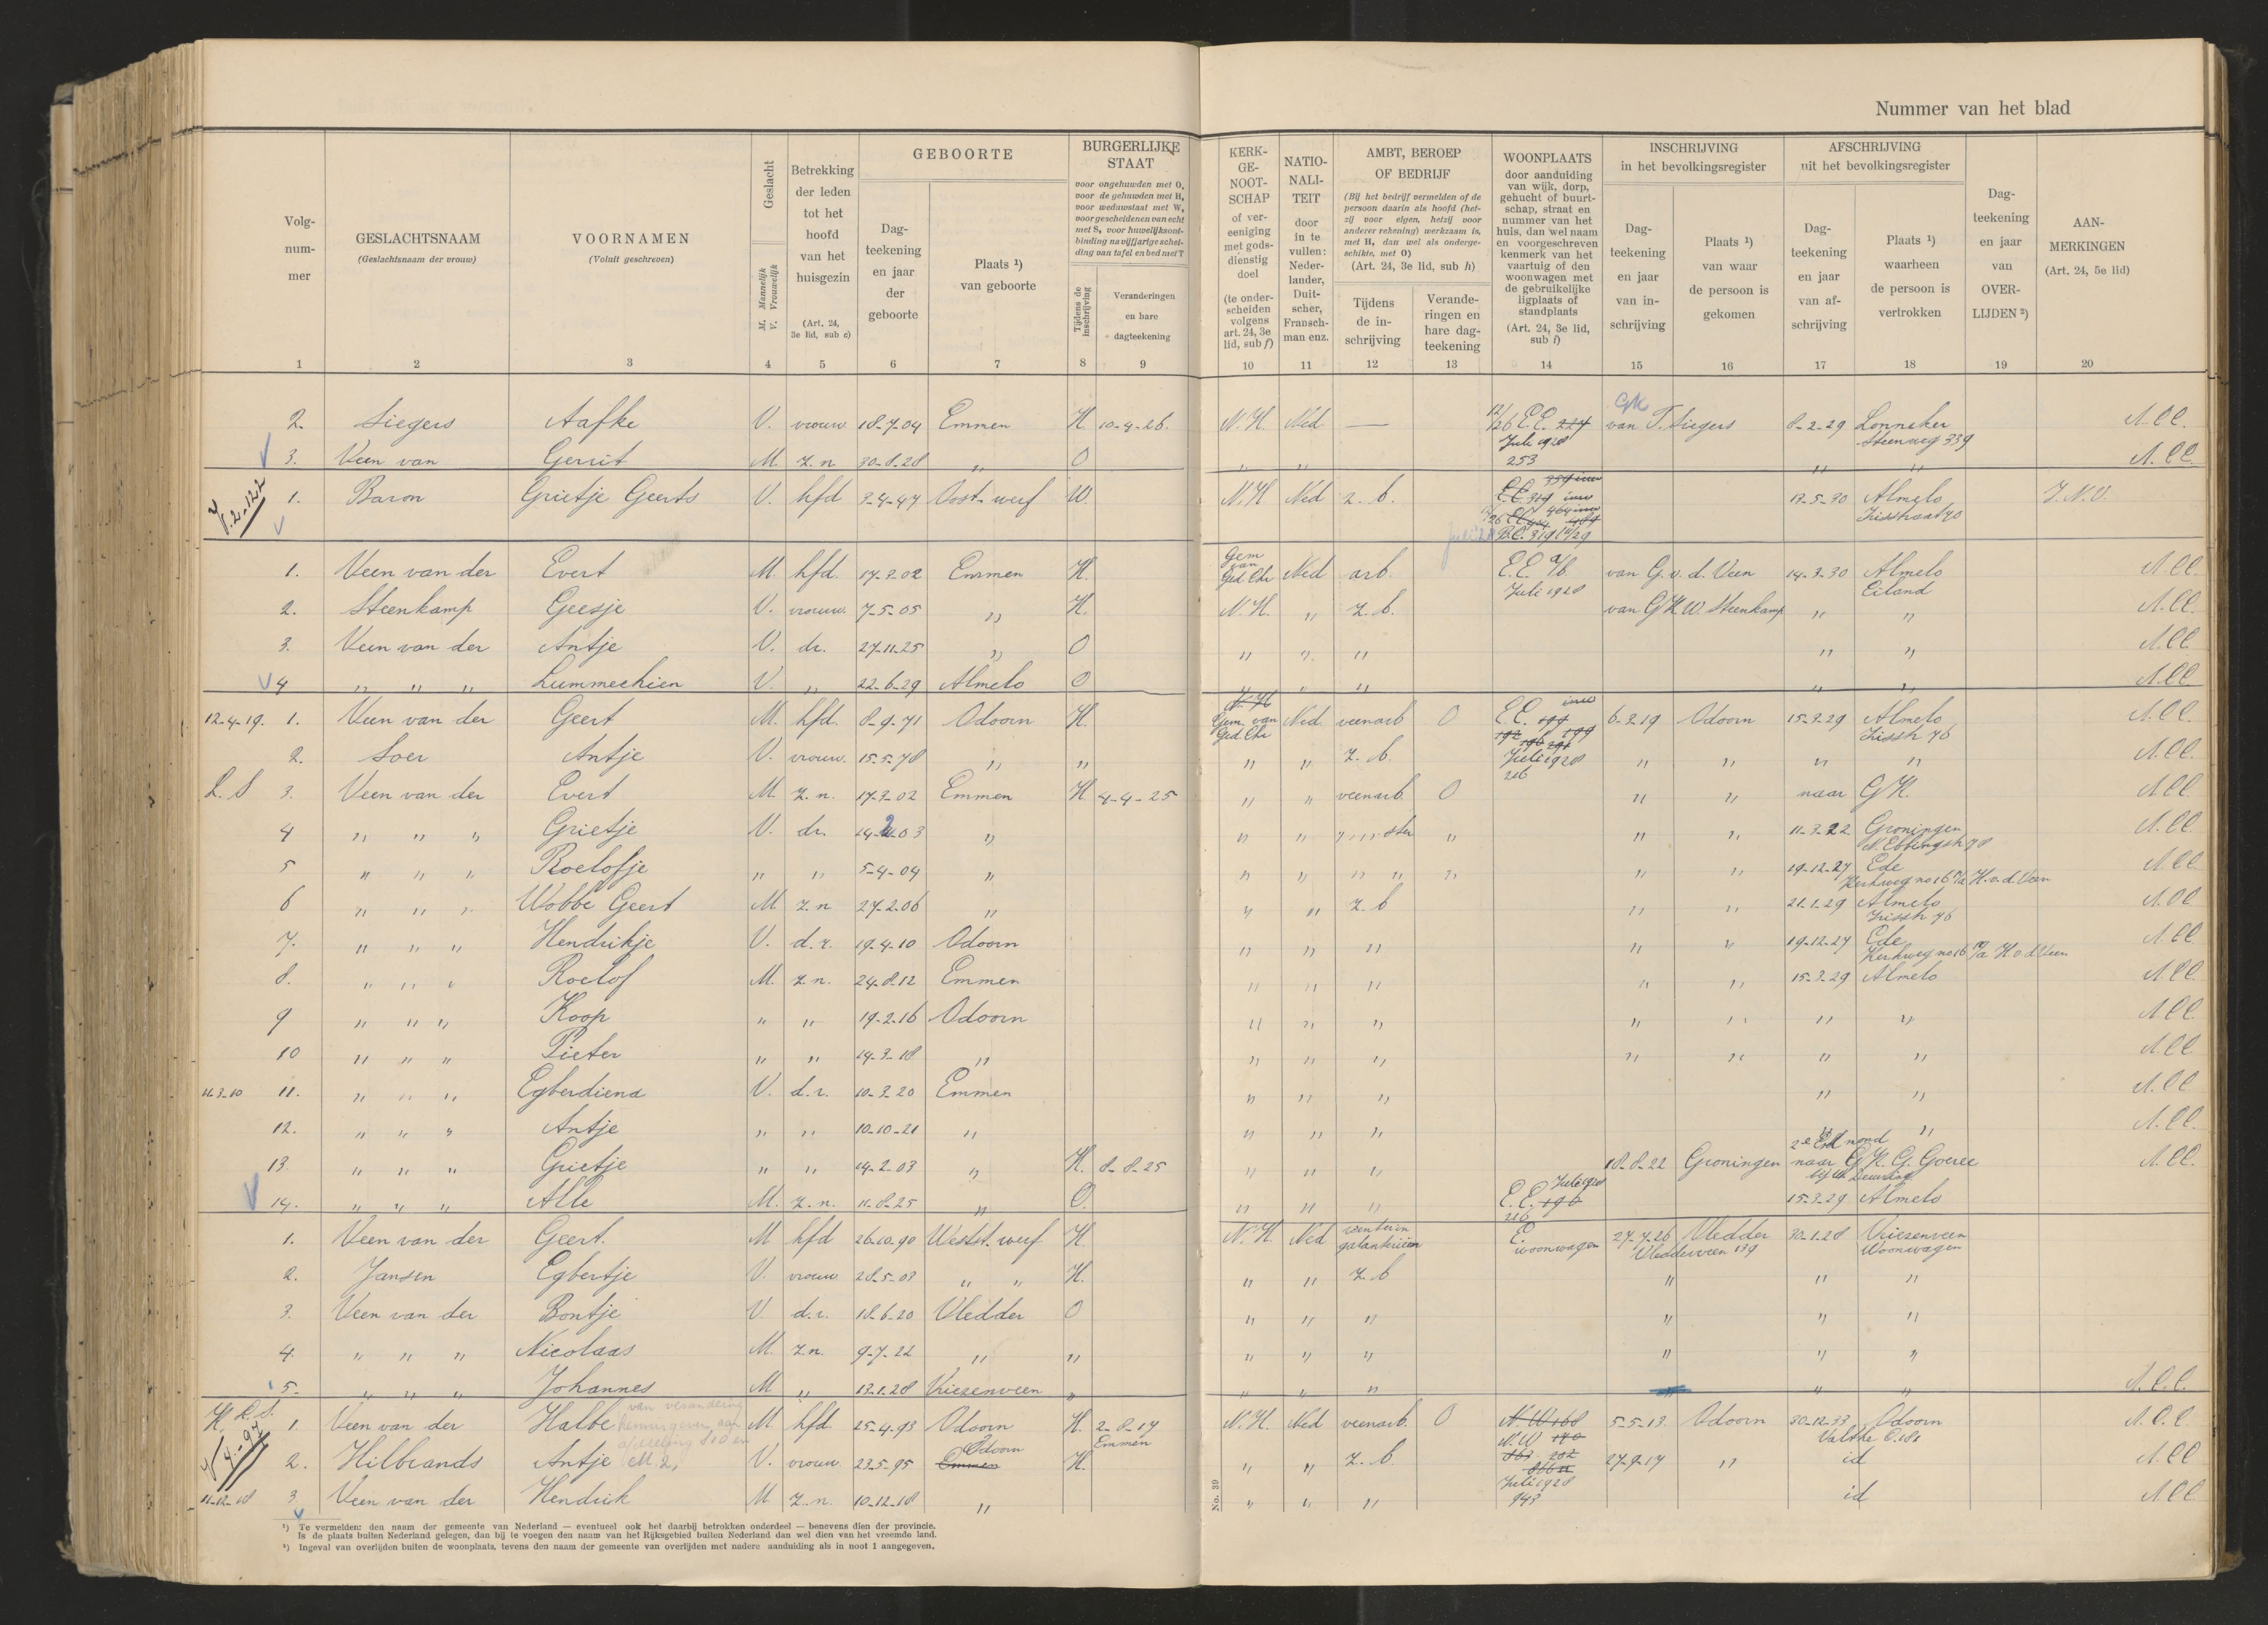 Nummer van het blad
Volg-
num-
mer
GESLACHTSNAAM
(Geslachtsnaam der vrouw)
VOORNAMEN
(Voluit geschreven)
Geslacht
M. Mannelijk
V. Vrouwelijk
Betrekking
der leden
tot het
hoofd
van het
huisgezin
(Art. 24,
3e lid, sub c)
GEBOORTE
Dag-
teekening
en jaar
der
geboorte
Plaats ¹)
van geboorte
BURGERLIJKE
STAAT
voor ongehuwden met O,
voor de gehuwden met H,
voor weduwstaat met W,
voor gescheidenen van echt
met S, voor huwelijksont-
binding na vijfjarige schei-
ding van tafel en bed met T
Tijdens de
inschrijving
Veranderingen
en hare
dagteekening
KERK-
GE-
NOOT-
SCHAP
of ver-
eeniging
met gods-
dienstig
doel
(te onder-
scheiden
volgens
art. 24, 3e
lid, sub f)
NATIO-
NALI-
TEIT
door
in te
vullen:
Neder-
lander,
Duit-
scher,
Fransch-
man enz.
AMBT, BEROEP
OF BEDRIJF
(Bij het bedrijf vermelden of de
persoon daarin als hoofd (het-
zij voor eigen, hetzij voor
anderer rekening) werkzaam is,
met H, dan wel als onderge-
schikte, met O)
(Art. 24, 3e lid, sub h)
Tijdens
de in-
schrijving
Verande-
ringen en
hare dag-
teekening
WOONPLAATS
door aanduiding
van wijk, dorp,
gehucht of buurt-
schap, straat en
nummer van het
huis, dan wel naam
en voorgeschreven
kenmerk van het
vaartuig of den
woonwagen met
de gebruikelijke
ligplaats of
standplaats
(Art. 24, 3e lid,
sub i)
INSCHRIJVING
in het bevolkingsregister
Dag-
teekening
en jaar
van in-
schrijving
Plaats ¹)
van waar
de persoon is
gekomen
AFSCHRIJVING
uit het bevolkingsregister
Dag-
teekening
en jaar
van af-
schrijving
Plaats ¹)
waarheen
de persoon is
vertrokken
Dag-
teekening
en jaar
van
OVER-
LIJDEN ²)
AAN-
MERKINGEN
(Art. 24, 5e lid)
1 2 3 4 5 6 7 8 9 10 11 12 13 14 15 16 17 18 19 20
2. Siegers Aafke V. vrouw 18-7-04 Emmen H 10-4-26. N.H. Ned — 12/26 E.E. 224 Juli 1928 253 GK van T. Siegers 8-2-29 Lonneker Steenweg 339
3. Veen van Gerrit M. z.n 30-8-28 " O " " " "
1. Baron Grietje Geerts V. hfd 3-4-47 Oost-werf W. N.H Ned z.b. 13-5-30 Almelo
1. Veen van der Evert M. hfd. 17-3-02 Emmen H. Gem van Ged Chr Ned arb. E.E. Juli 1928 van G.v.d. Veen 14-3-30 Almelo Eiland
2. Steenkamp Geesje V. vrouw. 7-5-05 " H. N.H. " z.b. van GK W. Steenkamp " "
3. Veen van der Antje V. dr. 27-11-25 " O " " " " "
4 " " " Lummechien V. " 22-6-29 Almelo O " " " " "
12-4-19. 1. Veen van der Geert M. hfd. 8-9-71 Odoorn H. N.H Gem. van Ged Chr Ned veenarb O E.E. 6-3-19 Odoorn 15-3-29 Almelo
2. Soer Antje V. vrouw. 15-5-78 " " " " z.b. Juli 1928 216 " " " "
3. Veen van der Evert M z.n. 17-3-02 Emmen H 4-4-25 " " veenarb. O " " naar GK.
4 " " " Grietje V. dr. 14-2-03 " " " " " " 11-3-22 Groningen
5 " " " Roelofje " " 5-4-04 " " " " " " " " 19-12-27 Ede Kerkweg no 16 H.v.d. Veen
6 " " " Wobbe Geert M z.n 27-2-06 " " " z.b " " 21-1-29 Almelo
7. " " " Hendrikje V. d.r. 19-4-10 Odoorn " " " " " 19-12-27 Ede Kerkweg no 16 H v d Veen
8. " " " Roelof M. z.n. 24-8-12 Emmen " " " " " 15-3-29 Almelo
9 " " " Koop " " 19-2-16 Odoorn " " " " " " "
10 " " " Pieter " " 14-3-18 " " " " " " " "
11. " " " Egberdiena V. d.r. 10-3-20 Emmen " " " " "
12. " " " Antje " " 10-10-21 " " " " " "
13. " " " Grietje " " 14-2-03 " H. 8-8-25 " " " 18-8-22 Groningen naar GK. G. Goeree
14. " " " Alle M. z.n. 11-8-25 " O. " " " Juli 1928 E.E. 190 216 15-3-29 Almelo
1. Veen van der Geert. M hfd 26-10-90 Westst. werf H. N.H. Ned venter in galanterieën E. woonwagen 27-7-26 Vledder Vledderveen 139 30-1-28 Vriezenveen Woonwagen
2. Jansen Egbertje V. vrouw 28-5-03 " " H. " " z.b " " "
3. Veen van der Bontje V. d.r. 18-6-20 Vledder O " " " " " "
4. " " " Nicolaas M. z.n. 9-7-22 " " " " " " " "
5. " " " Johannes M " 13-1-28 Vriezenveen " " " " " "
1. Veen van der Halbe M. hfd. 25-4-93 Odoorn H. 2-8-17 Emmen N.H. Ned veenarb. O N.W 168 5-5-13 Odoorn 30-12-33 Odoorn Valthe
van verandering
kennisgeven aan
afdeeling
2. Hilbrands Antje V. vrouw 23-5-95 Emmen Odoorn H. " " z.b. 27-9-17 " id
11-12-18 3 Veen van der Hendrik M z.n. 10-12-18 " " " " Juli 1928 943 id
No. 39
¹) Te vermelden: den naam der gemeente van Nederland — eventueel ook het daarbij betrokken onderdeel — benevens dien der provincie.
Is de plaats buiten Nederland gelegen, dan bij te voegen den naam van het Rijksgebied buiten Nederland dan wel dien van het vreemde land.
²) Ingeval van overlijden buiten de woonplaats, tevens den naam der gemeente van overlijden met nadere aanduiding als in noot 1 aangegeven.